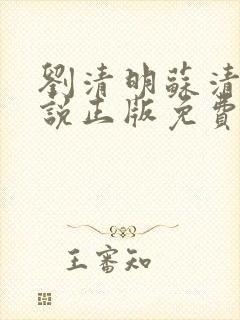 劉清明蘇清
説正版免費
王審知